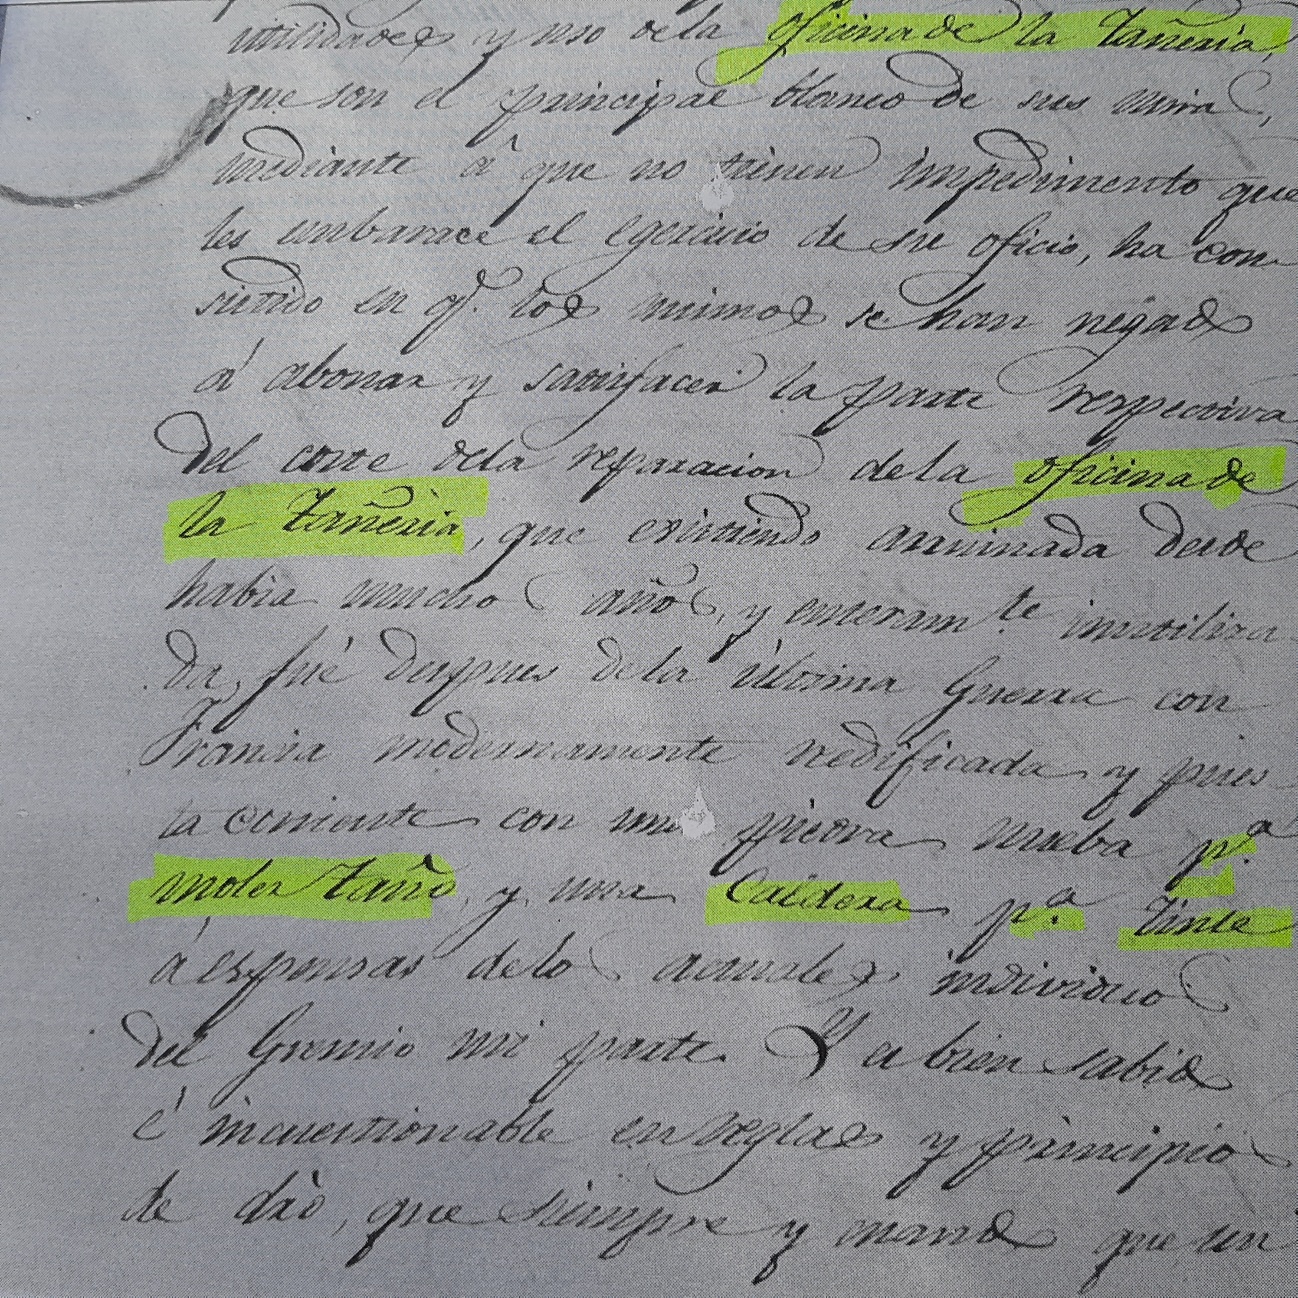 utilidades y uso dela oficina de la Tañeria,
que son el principal blanco de sus miras,
mediante á que no tienen impedimento que
les embarace el egercicio de su oficio, ha con
sistido en q.e los mismos se han negado
á abonar y satisfacer la parte respectiva
del coste dela reparacion de la oficina de
la Tañeria, que existiendo arruinada desde
habia muchos años, y enteram.te inutiliza
da, fué despues dela última Guerra con
Francia modernamente redificada y pues
ta corriente con una piedra nueba p.a
moler Tañó, y una Caldera p.a tinte
á espensas delos actuales individuos
del Gremio mi parte. Y es bien sabido
é incuestionable en reglas y principios
de dro, que siempre y cuando que un